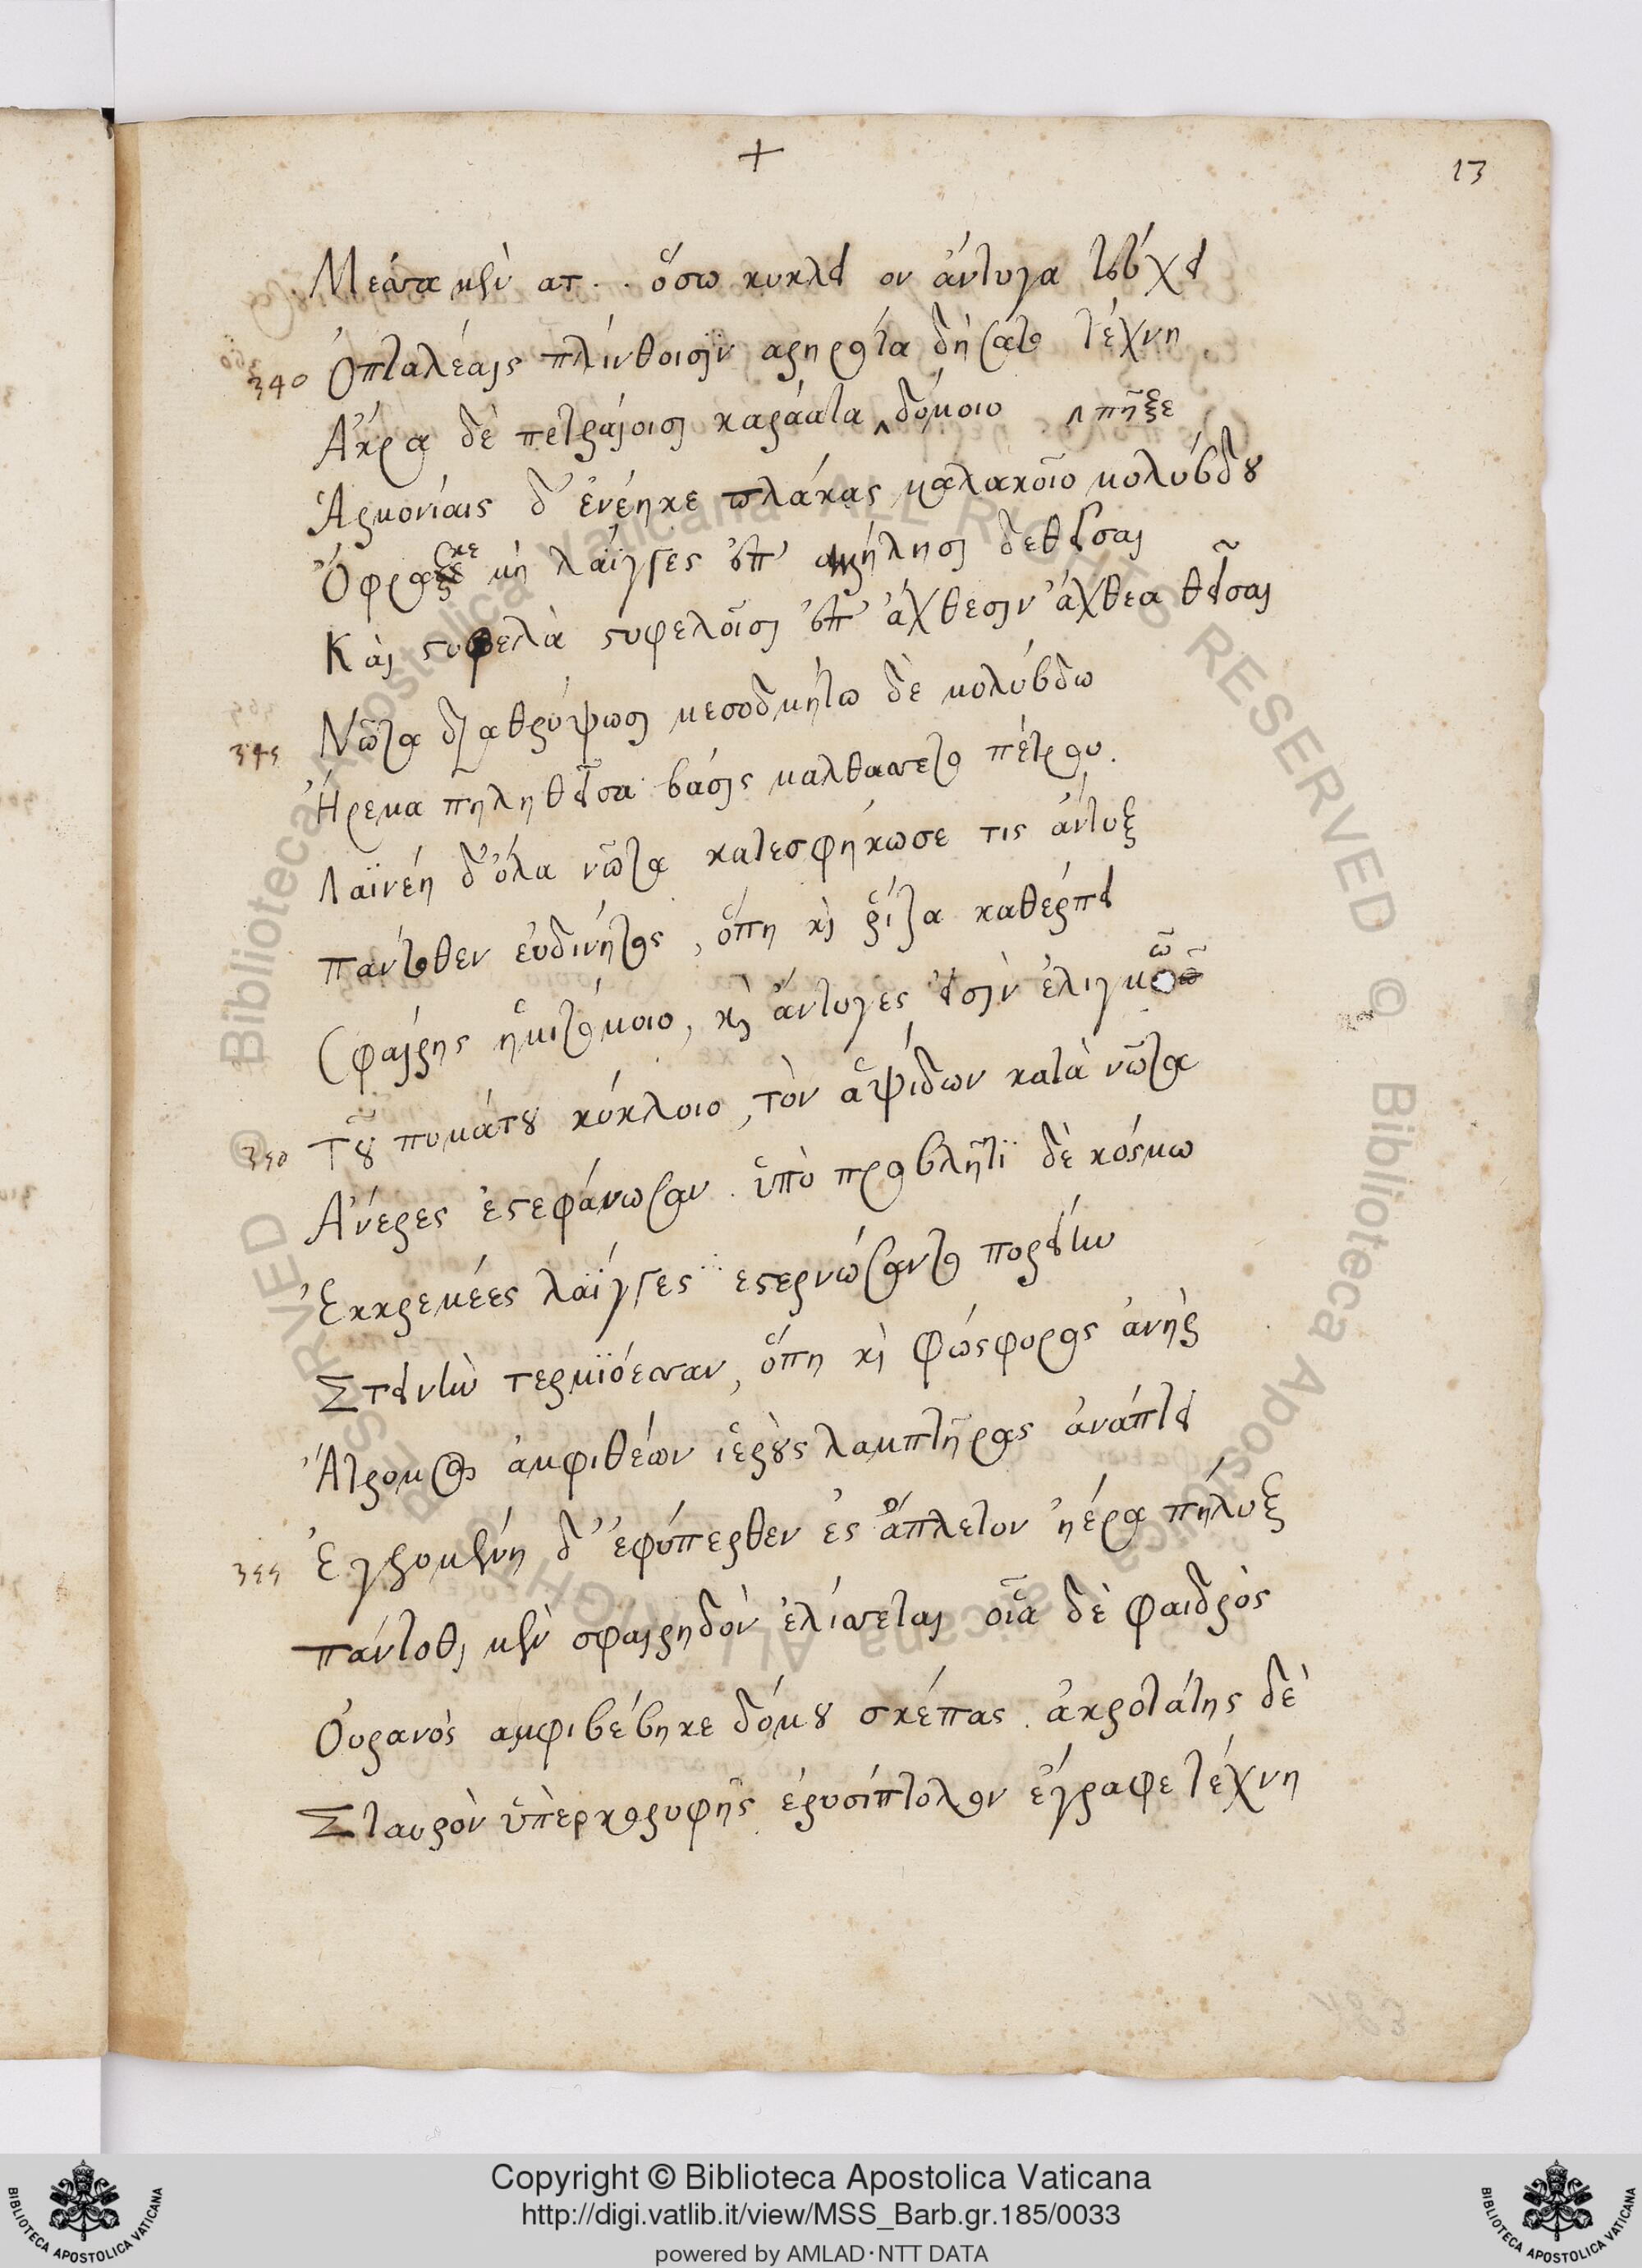 +
13
Μέσσα μὲν ατ . . ὅσω κυκλει ον ἄντυγα τεύχει
340 Ὀπταλέαις πλίνθοισιν αρηρότα δήσατο τέχνη
Ἄκρα δὲ πετραίοισι καράατα ‸ δόμοιο ‸ πῆξε
Ἁρμονίαις δ' ἐνέηκε πλάκας μαλακοῖο μολύβδου
Ὄφρα κε μὴ λάϊγγες ἐπ' ἀλλήλησι δεθεῖσαι
Καὶ στυφελὰ στυφελοῖσι ἐπ' ἄχθεσιν ἄχθεα θεῖσαι
345 Νῶτα διαθρύψωσι μεσοδμήτω δὲ μολύβδω
Ἠρεμα πηληθεῖσα βάσις μαλθάσσετο πέτρου.
Λαϊνέη δ' ὅλα νῶτα κατεσφήκωσε τις ἄντυξ
πάντοθεν εὐδινήτος, ὅπη καὶ ῥίζα καθέρπει
Σφαίρης ἡμιτόμοιο, καὶ ἄντυγες εἰσὶν ἑλιγμῶ
350 Τοῦ πυμάτου κύκλοιο, τὸν ἁψίδων κατὰ νῶτα
Ἀνέρες ἐστεφάνωσαν. ὑπὸ προβλῆτϊ δὲ κόσμω
Ἐκκρεμέες λάϊγγες ἐστερνώσαντο πορείην
Στεινὴν τερμϊόεσσαν, ὅπη καὶ φώσφορος ἀνὴρ
Ἄτρομος ἀμφιθέων ἱεροὺς λαμπτῆρας ἀνάπτει
355 Ἐγρομένη δ' ἐφύπερθεν ἐς ἄπλετον ἠέρα πήληξ
πάντοθι μὲν σφαιρηδὸν ἑλίσσεται οἷα δὲ φαιδρὸς
Οὐρανὸς αμφιβέβηκε δόμου σκέπας. ἀκροτάτης δὲ
Σταυρὸν ὑπὲρ κορυφῆς ἐρυσίπτολον ἔγραφε τέχνη
Copyright © Biblioteca Apostolica Vaticana
http://digi.vatlib.it/view/MSS_Barb.gr.185/0033
powered by AMLAD·NTT DATA